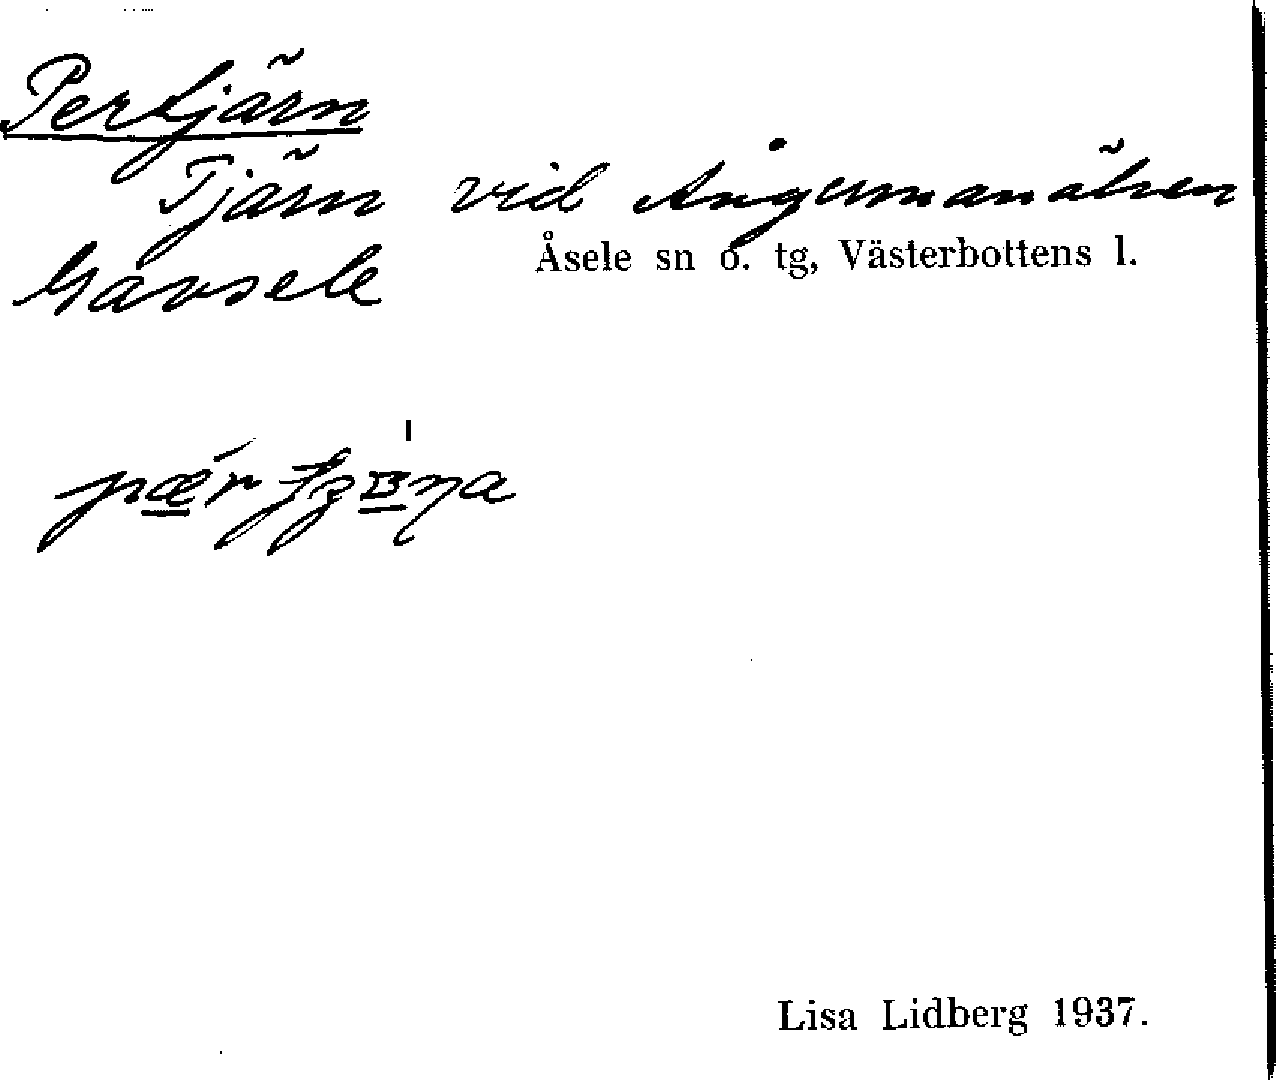 Pertjärn
Tjärn vid Ångermanälven
Gavsele
Åsele sn o. tg, Västerbottens l.
Lisa Lidberg 1937.